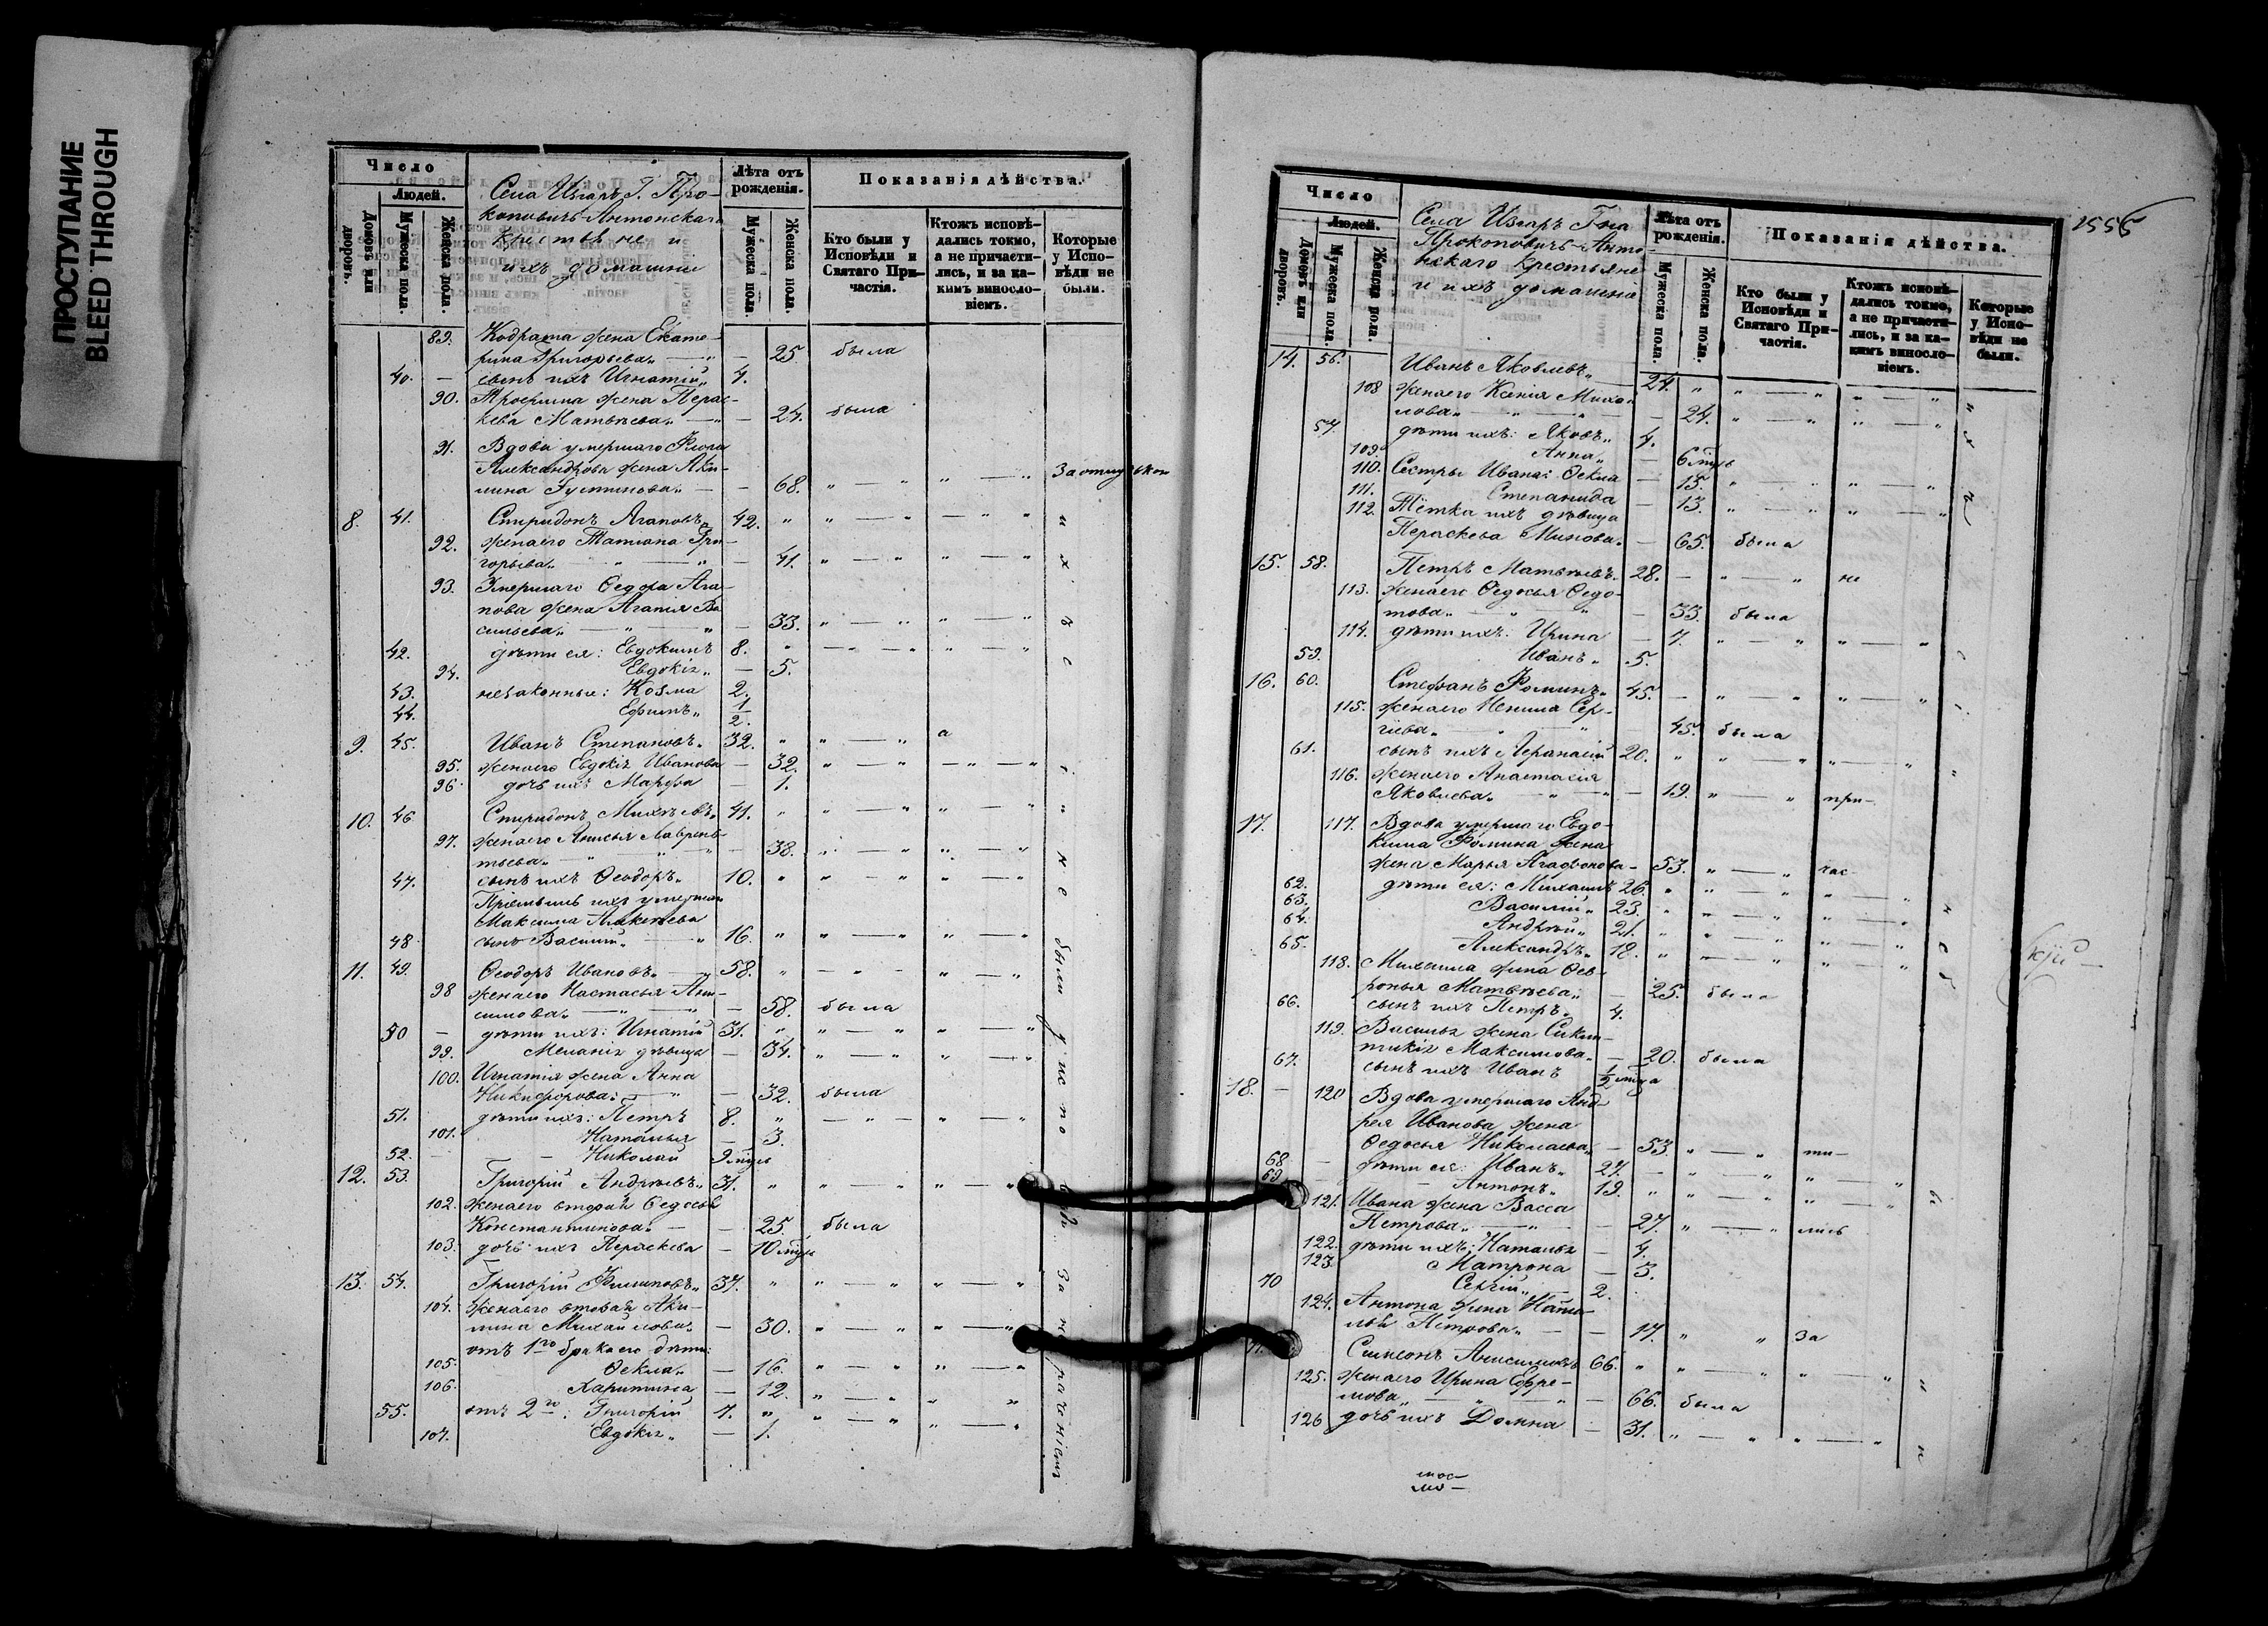 ПРОСТУПАНИЕ
BLEED THROUGH
Число
Людей.
Домовъ или дворовъ.
Мужеска пола.
Женска пола.
Села Изгаръ Г. Про-
коповичъ-Антонскаго
крестьяне и
ихъ домашніе
Лѣта отъ рожденія.
Мужеска пола.
Женска пола.
Показанія дѣйства.
Кто были у Исповѣди и Святаго Причастія.
Ктожъ исповѣдались токмо, а не причастились, и за какимъ винословіемъ.
Которые у Исповѣди не были.
89. Кодрата жена Екате-
рина Григорьева „ — „ — 25 была
40. — сынъ ихъ Игнатій „ 4.
90. Трофима жена Парас-
кева Матвѣева „ — „ — 24. была
91. Вдова умершаго Флора
Александрова жена Аку-
лина Густинова „ — — 68. „ — „ „ — „ За отлучкою
8. 41. Спиридонъ Агаповъ „ 42. „ „ — „ — „ „ и
92. жена его Татіана Гри-
горьева „ — „ — „ — 41. „ — „ „ — „ х
93. Умершаго Ѳедора Ага-
пова жена Агапія Ва-
сильева „ — „ — „ — 33. „ — „ „ — „ ъ
42. дѣти ея: Евдокимъ 8. „ — „ — „ „ — „
94. Евдокія „ — 5. с
43. незаконные: Козма 2.
44. Ефимъ „ 1/2.
9. 45. Иванъ Степановъ „ 32. „ „ — „ а
95. жена его Евдокія Иванова — 32. „ — „ — „ — „
96. дочь ихъ Марѳа — 1.
10. 46 Спиридонъ Михѣевъ „ 41. „ „ — „ „ — „ „
97. жена его Анисья Лаврень-
тьева „ — „ — „ — 38. „ — „ „ — „ н
47. сынъ ихъ Ѳеодоръ „ 10. „ „ — „ „ — „ е
Пріемышъ ихъ умершаго
Максима Алексѣева
48 сынъ Василій „ — „ 16. „ „ — „ „ — „
11. 49. Ѳеодоръ Ивановъ „ — „ 58. „ — „ — „ — „ были
98 жена его Настасья Ани-
симова „ — „ — „ — 58. была
50 — дѣти ихъ: Игнатій 31. „ „ — „ „ — „ у
99. Меланія дѣвица — 34. „ — „ „ — „ ис
100. Игнатія жена Анна
Никифорова „ — „ — 32. была по
51. дѣти ихъ: Петръ 8. „ — „ — „ — „
101. Наталья — 3.
52. — Николай 9 мѣць
12. 53. Григорій Андрѣевъ „ 31. „ „ — „ „ — „
102. жена его вторая Ѳедосья
Константинова „ — — 25. была
103. дочь ихъ Параскева — 10 мѣць
13. 54. Григорій Филиповъ „ 37. „ „ — „ „ — „ За
104. жена его вторая Аку-
лина Михайлова „ — 30. „ — „ „ — „ не
отъ 1го брака его дѣти:
105. Ѳекла „ — 16. „ — „ „ — „ ра
106. Харитина — 12. „ — „ „ „ че
55. отъ 2го: Григорій 7. „ „ — „ „ — „ ніемъ
107. Евдокія „ — 1.
1556
Число
Людей.
Домовъ или дворовъ.
Мужеска пола.
Женска пола.
Села Изгаръ Гна
Прокоповичъ-Анто-
нскаго крестьяне
и ихъ домашніе
Лѣта отъ рожденія.
Мужеска пола.
Женска пола.
Показанія дѣйства.
Кто были у Исповѣди и Святаго Причастія.
Ктожъ исповѣдались токмо, а не причастились, и за какимъ винословіемъ.
Которые у Исповѣди не были.
14. 56. Иванъ Яковлевъ „ — 24. „ „ — „ „ — „ „
108 жена его Ксенія Михай-
лова „ — „ — „ — 24. „ — „ „ — „
57. дѣти ихъ: Яковъ „ 4. х
109. Анна „ — 6 мѣць
110. Сестры Ивана: Ѳекла — 15. „ „ „ — „
111. Степанида — 13. „ — „ „ — „ ъ
112. Тётка ихъ дѣвица
Параскева Минова „ — 65. была
15. 58. Петръ Матвѣевъ „ 28. — „ — „ не
113. жена его Ѳедосья Ѳедо-
това „ — „ — „ — 33. была
114. дѣти ихъ: Ирина — 7. „ — „ „ — „
59. Иванъ „ 5.
16. 60. Стефанъ Ѳоминъ „ 45. — „ — „ „ — „
115. жена его Ненила Сер-
гѣева „ — „ — „ 45. была
61. сынъ ихъ Аѳанасій 20. „ „ — „ „ — „ „
116. жена его Анастасія
Яковлева „ — „ — „ — 19. „ — „ при-
17. 117. Вдова умершаго Евдо-
кима Ѳомина жена
жена Марья Агаѳонова — 53. „ — „ час-
62. дѣти ея: Михаилъ 26. „ „ — „ „ — „
63. Василій „ 23. „ „ — „ „ — „ н
64. Андрей „ 21. „ „ — „ „ — „ е
65. Александръ „ 18. „ „ — „ „ — „
118. Михаила жена Ѳев-
ронья Матвѣева „ — 25. была б
66. сынъ ихъ Петръ „ 4.
119. Василья жена Сикли-
тикія Максимова „ — 20. была
67. сынъ ихъ Иванъ 1/2 мѣца
18. — 120 Вдова умершаго Анд-
рея Иванова жена
Ѳедосья Николаева „ — 53. „ — „ ти-
68 — дѣти ея: Иванъ „ 27. — „ — „ „ — „
69. — Антонъ „ 19. „ „ — „ „ — „ ы
121. Ивана жена Васса
Петрова „ — „ — 27. „ — „ лись
122. дѣти ихъ: Наталья — 4.
123. Матрона — 3.
70 Сергій „ — 2.
124. Антона жена Ната-
лья Петрова „ — — 17. „ „ За
Симеонъ Анисимовъ 66. „ „ — „ „ — „
125. жена его Ирина Ефре-
мова „ — „ — „ — 66. была
126 дочь ихъ Домна — 31. „ — „ „ — „ и